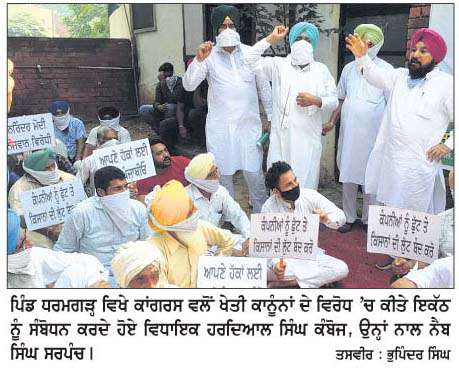 ਨਰਿੰਦਰ ਮੋਦੀ
ਵਿਰੋਧੀ
ਆਪਣੇ ਹੱਕਾਂ ਲਈ
ਕੰਪਨੀਆਂ ਨੂੰ ਛੂਟ ਤੇ
ਕਿਸਾਨਾਂ ਦੀ ਲੁੱਟ ਬੰਦ
ਕੰਪਨੀਆਂ ਨੂੰ ਛੂਟ ਤੇ
ਕਿਸਾਨਾਂ ਦੀ ਲੁੱਟ ਬੰਦ ਕਰੋ
ਕੰਪਨੀਆਂ ਨੂੰ ਛੂਟ ਤੇ
ਕਿਸਾਨਾਂ ਦੀ ਲੁੱਟ ਬੰਦ ਕਰੋ
ਆਪਣੇ ਹੱਕਾਂ ਲਈ
ਪਿੰਡ ਧਰਮਗੜ੍ਹ ਵਿਖੇ ਕਾਂਗਰਸ ਵਲੋਂ ਖੇਤੀ ਕਾਨੂੰਨਾਂ ਦੇ ਵਿਰੋਧ 'ਚ ਕੀਤੇ ਇਕੱਠ
ਨੂੰ ਸੰਬੋਧਨ ਕਰਦੇ ਹੋਏ ਵਿਧਾਇਕ ਹਰਦਿਆਲ ਸਿੰਘ ਕੰਬੋਜ, ਉਨ੍ਹਾਂ ਨਾਲ ਨੈਬ
ਸਿੰਘ ਸਰਪੰਚ। ਤਸਵੀਰ : ਭੁਪਿੰਦਰ ਸਿੰਘ